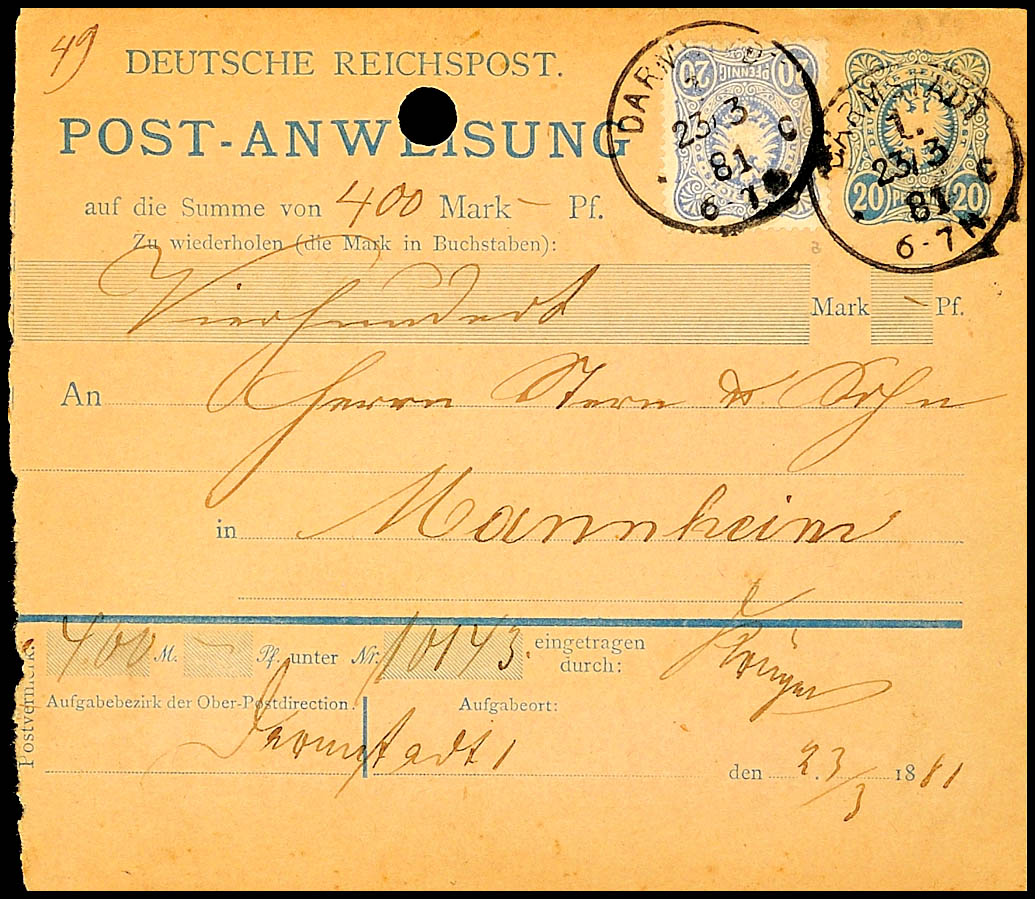 49
DEUTSCHE REICHSPOST.
POST-ANWEISUNG
auf die Summe von 400 Mark – Pf.
Zu wiederholen (die Mark in Buchstaben):
Vierhundert Mark – Pf.
An Herrn Stern & Sohn
in Mannheim
400 M. – Pf. unter Nr. 10143. eingetragen durch:
Postvermerk.
Aufgabebezirk der Ober-Postdirection. Aufgabeort:
Darmstadt 1
den 23/3 1881
20 PFENNIG 20
DARMSTADT
1.
23 3
81 C
6-7N
20 PFENNIG 20
DARMSTADT
1.
23 3
81 C
6-7N